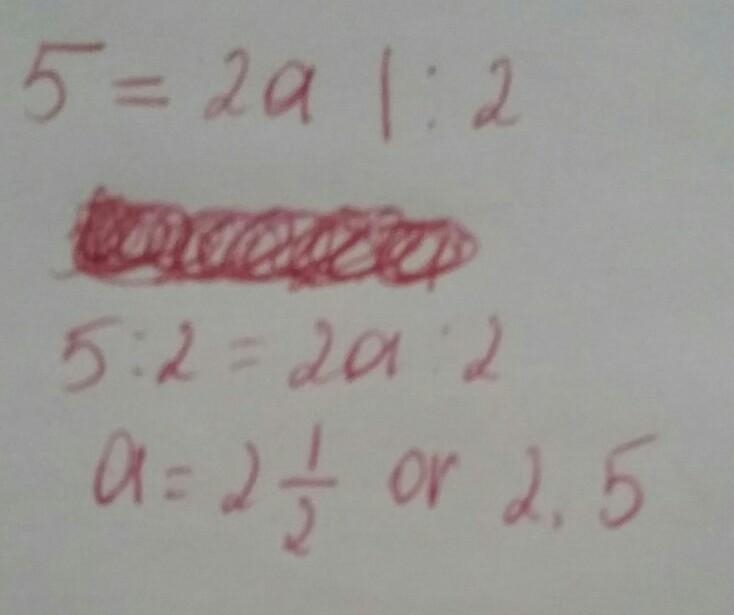 5 = 2a | : 2
5 : 2 = 2a : 2
a = 2 1/2 or 2.5